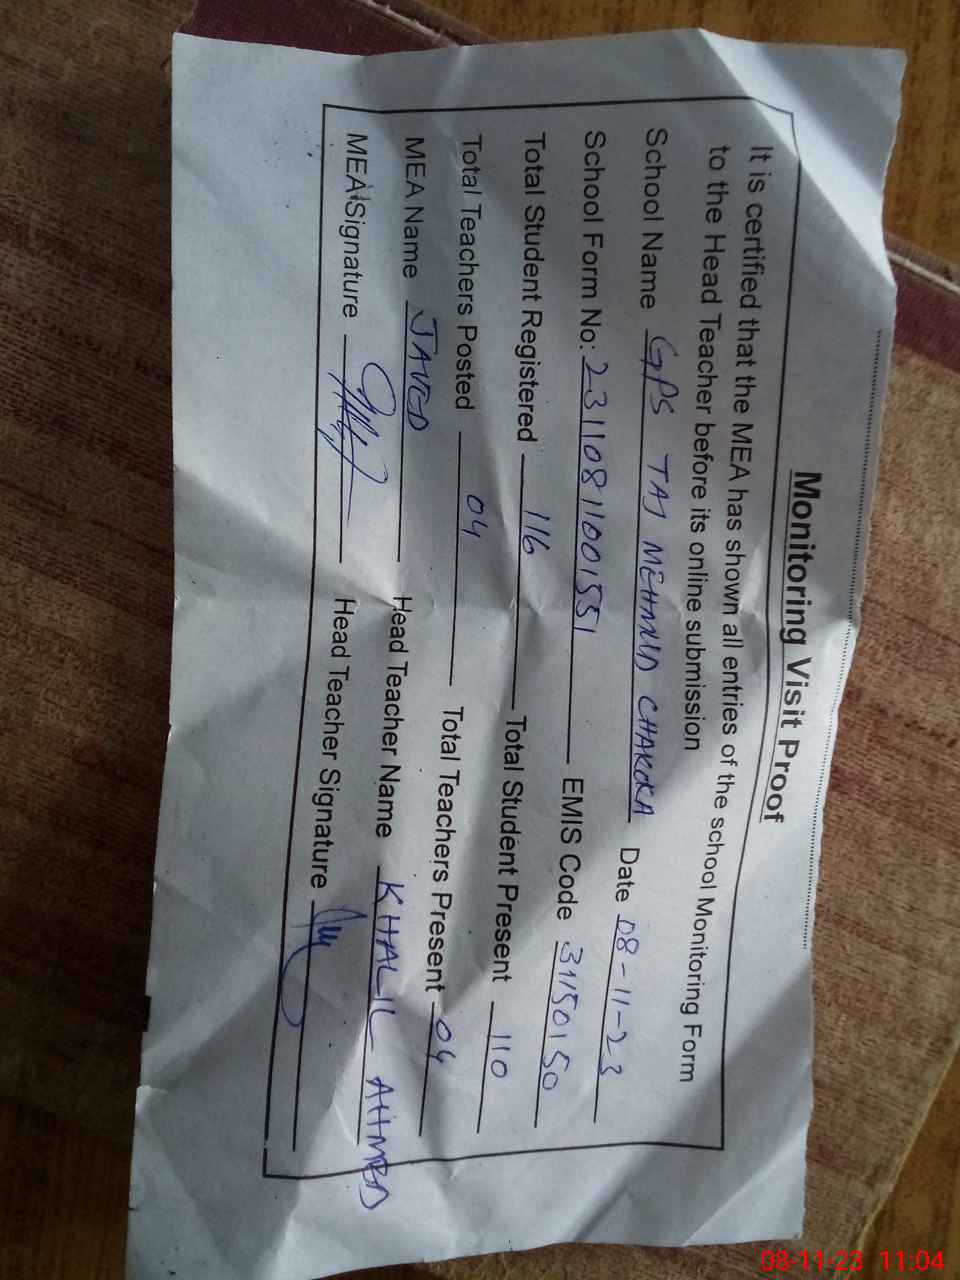 Monitoring Visit Proof
It is certified that the MEA has shown all entries of the school Monitoring Form
to the Head Teacher before its online submission
School Name GPS TAJ MEHAMD CHAKORA Date 08-11-23
School Form No: 23110811001551 EMIS Code 31150150
Total Student Registered 116 Total Student Present 110
Total Teachers Posted 04 Total Teachers Present 04
MEA Name JAVED Head Teacher Name KHALIL AHMED
MEA Signature Head Teacher Signature
08-11-23 11:04